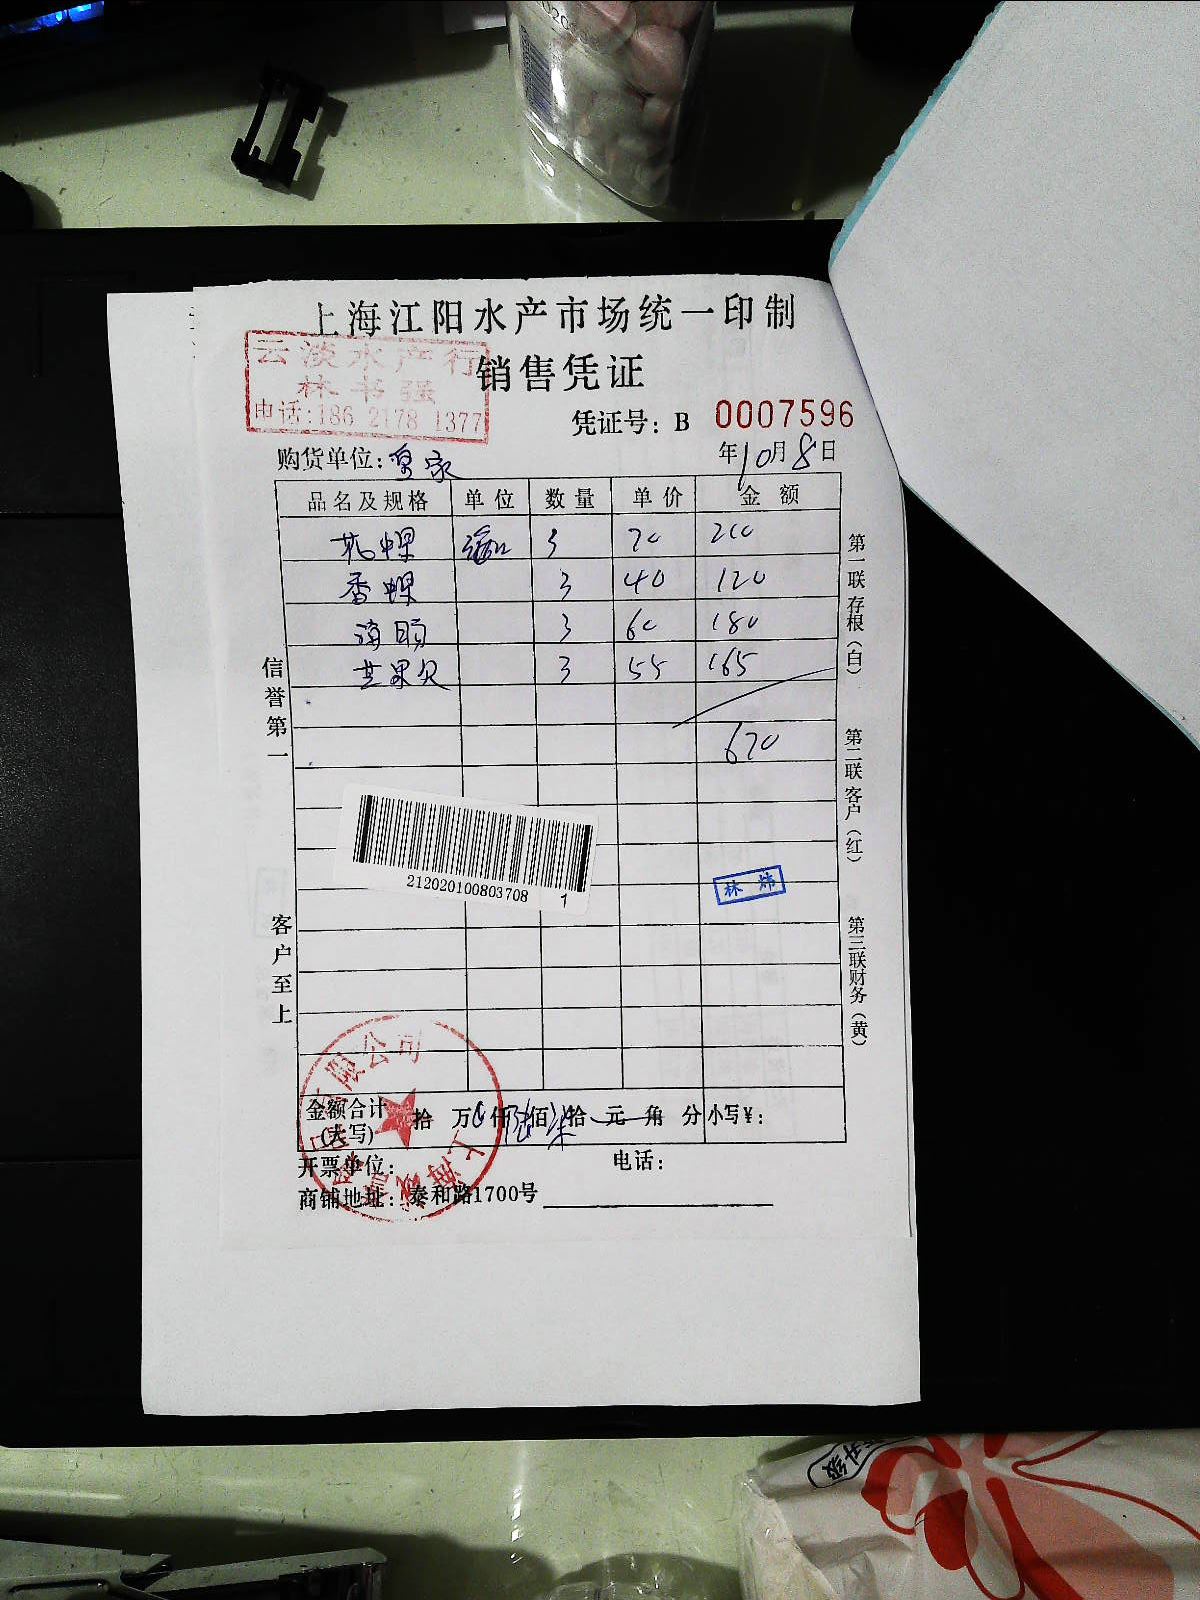 上海江阳水产市场统一印制
云淡水产行
林书强
电话:186 2178 1377
销售凭证
凭证号: B 0007596
购货单位: 家
年10月8日
品名及规格 单位 数量 单价 金额
花螺 3 70 210
香螺 3 40 120
海 3 60 180
芒果贝 3 55 165
670
信誉第一
客户至上
第一联存根(白)
第二联客户(红)
第三联财务(黄)
212020100803708 1
林炜
金额合计(大写) 拾 万 仟陆佰柒拾 元 角 分 小写¥:
限公司
上海
开票单位: 电话:
商铺地址: 泰和路1700号
升级